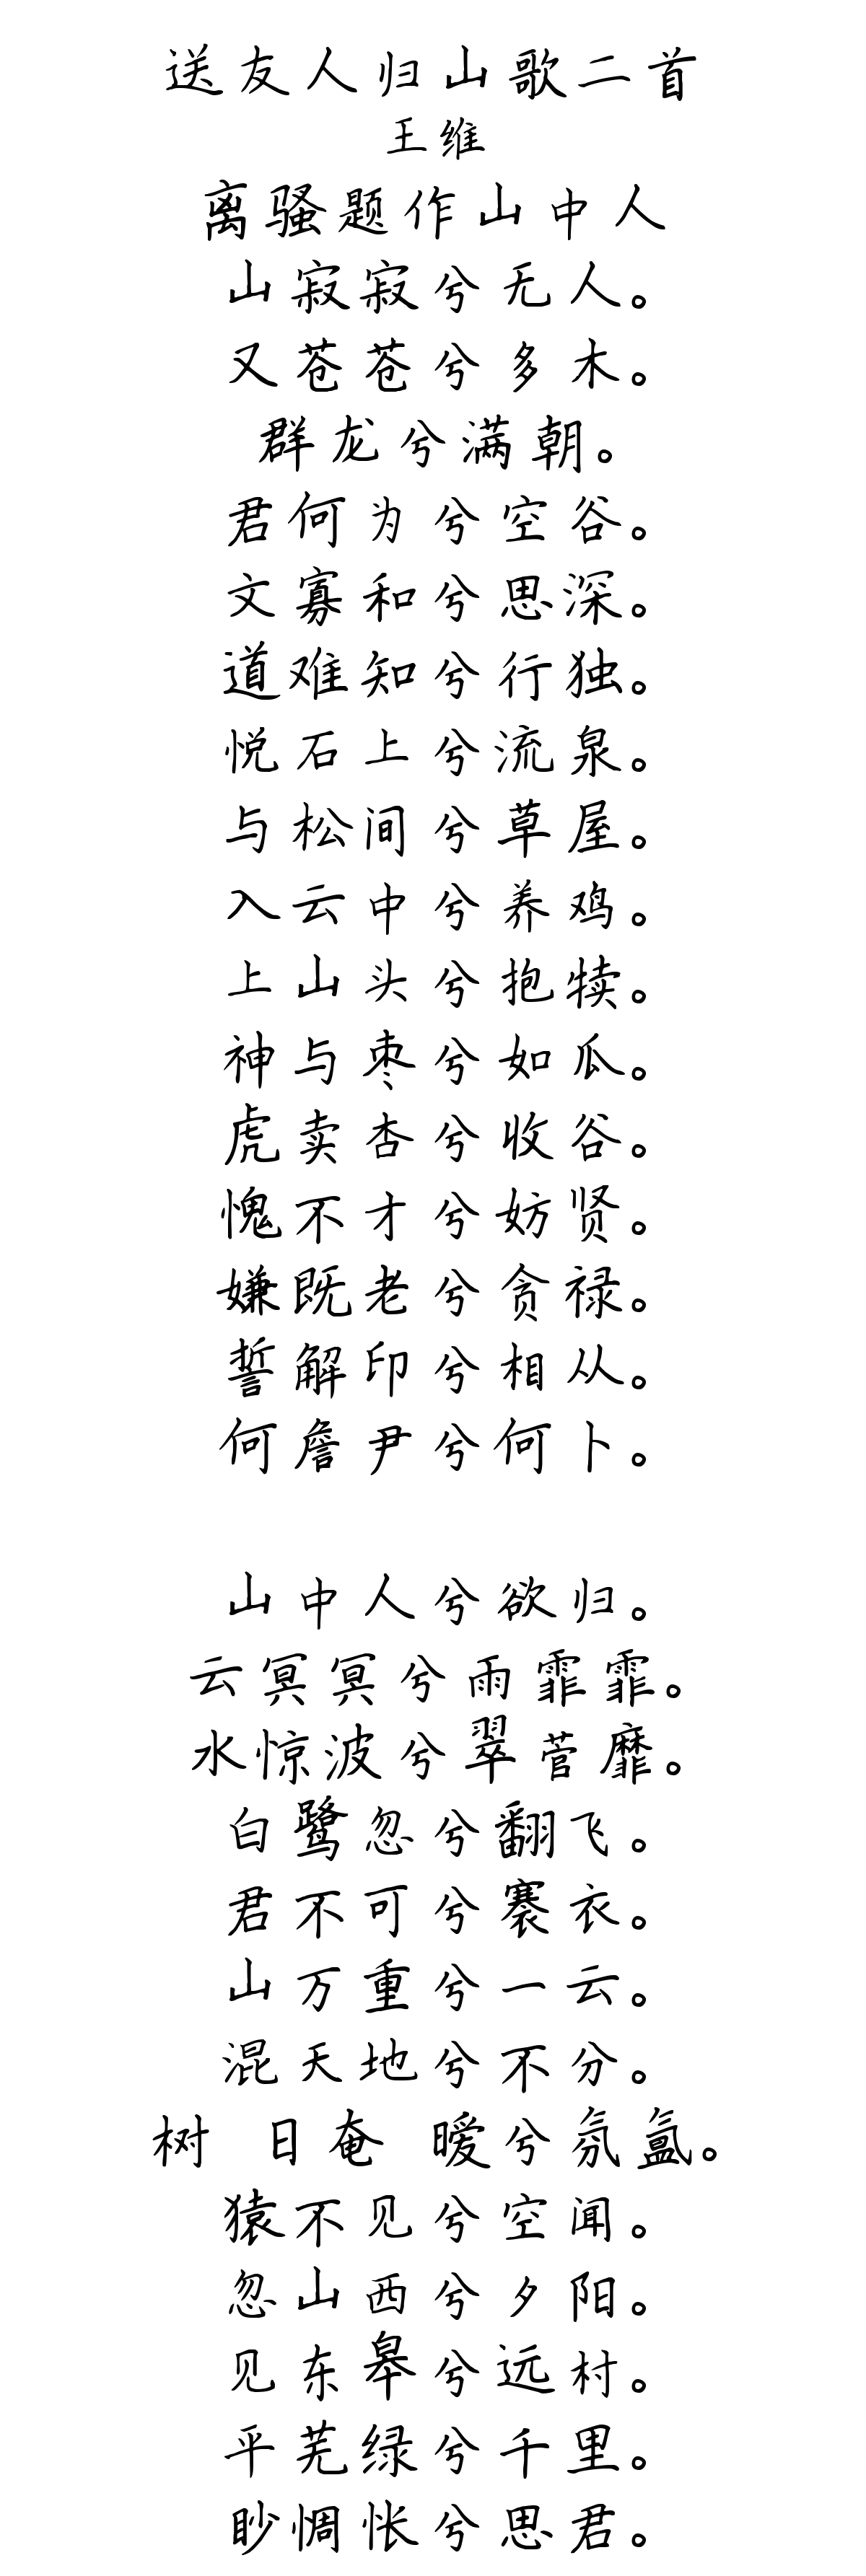 送友人归山歌二首
王维
离骚题作山中人
山寂寂兮无人。
又苍苍兮多木。
群龙兮满朝。
君何为兮空谷。
文寡和兮思深。
道难知兮行独。
悦石上兮流泉。
与松间兮草屋。
入云中兮养鸡。
上山头兮抱犊。
神与枣兮如瓜。
虎卖杏兮收谷。
愧不才兮妨贤。
嫌既老兮贪禄。
誓解印兮相从。
何詹尹兮何卜。
山中人兮欲归。
云冥冥兮雨霏霏。
水惊波兮翠菅靡。
白鹭忽兮翻飞。
君不可兮褰衣。
山万重兮一云。
混天地兮不分。
树 日奄 暧兮氛氲。
猿不见兮空闻。
忽山西兮夕阳。
见东皋兮远村。
平芜绿兮千里。
眇惆怅兮思君。